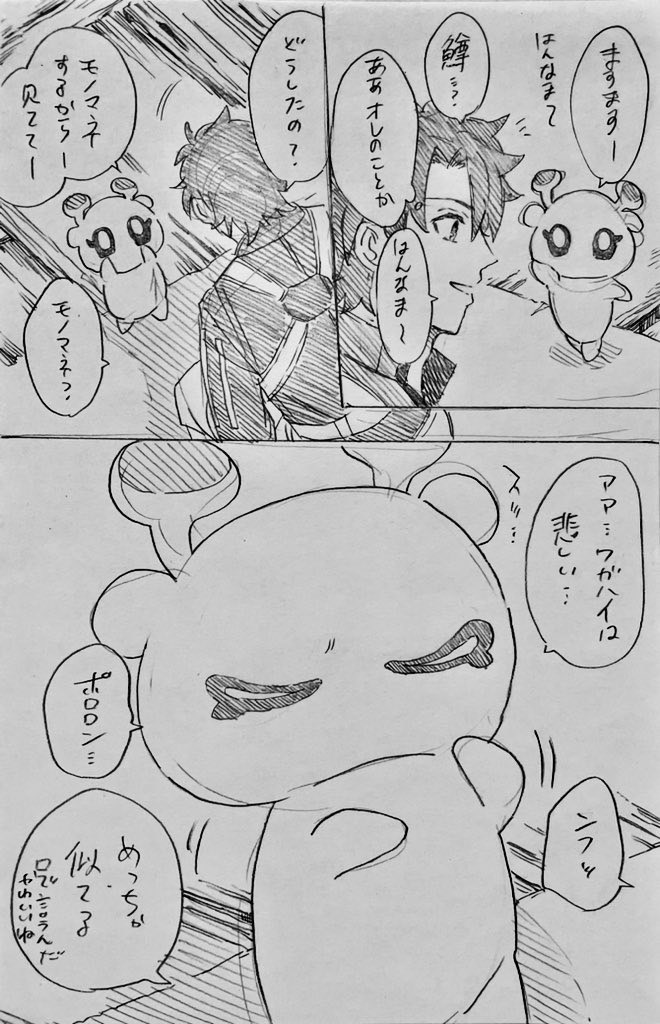 ますますー
はんなまて
鱒…?
ああオレのことか
はんなま〜
どうしたの?
モノマネ
するからー
見ててー
モノマネっ?
アア…ワガハイは
悲しい…
スッ…
ポロロン…
ンフッ
めっちゃ
似てる
口で
言うんだ
かわいいね